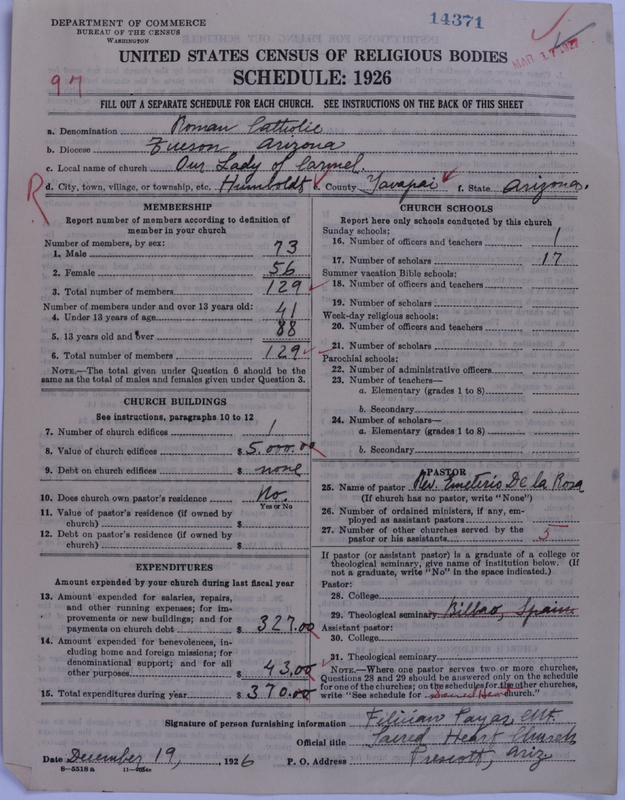 DEPARTMENT OF COMMERCE
BUREAU OF THE CENSUS
WASHINGTON
14371
MAR 17 1927
UNITED STATES CENSUS OF RELIGIOUS BODIES
SCHEDULE: 1926
97
FILL OUT A SEPARATE SCHEDULE FOR EACH CHURCH. SEE INSTRUCTIONS ON THE BACK OF THIS SHEET
a. Denomination Roman Catholic
b. Diocese Tucson Arizona
c. Local name of church Our Lady of Carmel.
R
d. City, town, village, or township, etc. Humboldt County Yavapai f. State Arizona.
MEMBERSHIP
Report number of members according to definition of member in your church
Number of members, by sex:
1. Male 73
2. Female 56
3. Total number of members 129
Number of members under and over 13 years old:
4. Under 13 years of age 41
5. 13 years old and over 88
6. Total number of members 129
NOTE.—The total given under Question 6 should be the
same as the total of males and females given under Question 3.
CHURCH BUILDINGS
See instructions, paragraphs 10 to 12
7. Number of church edifices 1
8. Value of church edifices $ 5.000.00
9. Debt on church edifices $ none
10. Does church own pastor's residence No.
Yes or No
11. Value of pastor's residence (if owned by
church) $
12. Debt on pastor's residence (if owned by
church) $
EXPENDITURES
Amount expended by your church during last fiscal year
13. Amount expended for salaries, repairs,
and other running expenses; for im-
provements or new buildings; and for
payments on church debt $ 327.00
14. Amount expended for benevolences, in-
cluding home and foreign missions; for
denominational support; and for all
other purposes $ 43.00
15. Total expenditures during year $ 370.00
CHURCH SCHOOLS
Report here only schools conducted by this church
Sunday schools:
16. Number of officers and teachers 1
17. Number of scholars 17
Summer vacation Bible schools:
18. Number of officers and teachers
19. Number of scholars
Week-day religious schools:
20. Number of officers and teachers
21. Number of scholars
Parochial schools:
22. Number of administrative officers
23. Number of teachers—
a. Elementary (grades 1 to 8)
b. Secondary
24. Number of scholars—
a. Elementary (grades 1 to 8)
b. Secondary
PASTOR
25. Name of pastor Rev. Emeterio De la Rosa
(If church has no pastor, write "None")
26. Number of ordained ministers, if any, em-
ployed as assistant pastors
27. Number of other churches served by the
pastor or his assistants 5
If pastor (or assistant pastor) is a graduate of a college or
theological seminary, give name of institution below. (If
not a graduate, write "No" in the space indicated.)
Pastor:
28. College
29. Theological seminary Bilbao, Spain
Assistant pastor:
30. College
31. Theological seminary
NOTE.—Where one pastor serves two or more churches,
Questions 28 and 29 should be answered only on the schedule
for one of the churches; on the schedules for the other churches,
write "See schedule for Sacred Heart church."
Signature of person furnishing information Filician Payas CMF.
Official title Sacred Heart Church
Date December 19, , 1926 P. O. Address Prescott, Ariz
8—5518 a